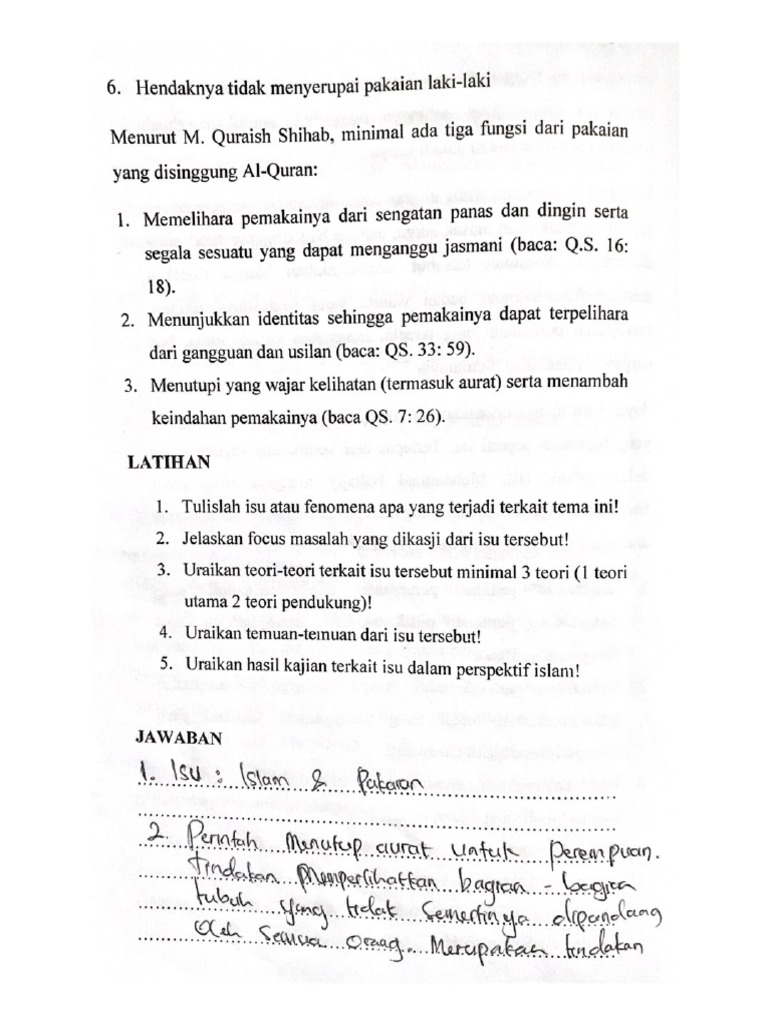 6. Hendaknya tidak menyerupai pakaian laki-laki
Menurut M. Quraish Shihab, minimal ada tiga fungsi dari pakaian
yang disinggung Al-Quran:
1. Memelihara pemakainya dari sengatan panas dan dingin serta
segala sesuatu yang dapat menganggu jasmani (baca: Q.S. 16:
18).
2. Menunjukkan identitas sehingga pemakainya dapat terpelihara
dari gangguan dan usilan (baca: QS. 33: 59).
3. Menutupi yang wajar kelihatan (termasuk aurat) serta menambah
keindahan pemakainya (baca QS. 7: 26).
LATIHAN
1. Tulislah isu atau fenomena apa yang terjadi terkait tema ini!
2. Jelaskan focus masalah yang dikasji dari isu tersebut!
3. Uraikan teori-teori terkait isu tersebut minimal 3 teori (1 teori
utama 2 teori pendukung)!
4. Uraikan temuan-temuan dari isu tersebut!
5. Uraikan hasil kajian terkait isu dalam perspektif islam!
JAWABAN
1. Isu : Islam & Pakaian
2. Perintah Menutup aurat untuk perempuan.
tindakan Memperlihatkan bagian - bagian
tubuh yang tidak Semestinya dipandang
oleh Semua orang. Merupakan tindakan